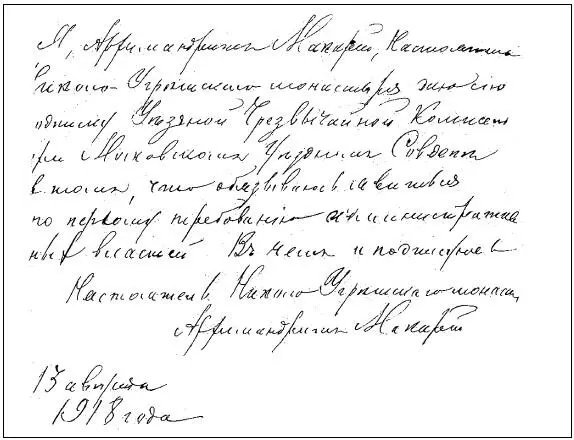 Я, Архимандрит Макарий, Настоятель
Николо-Угрешского монастыря даю сію
подписку Уездной Чрезвычайной Комиссіи
при Московском Уездном Совдепе
в том, что обязываюсь явиться
по первому требованию административ
ных властей В чем и подписуюсь
Настоятель Николо Угрешского монаст.
Архимандрит Макарій
13 августа
1918 года